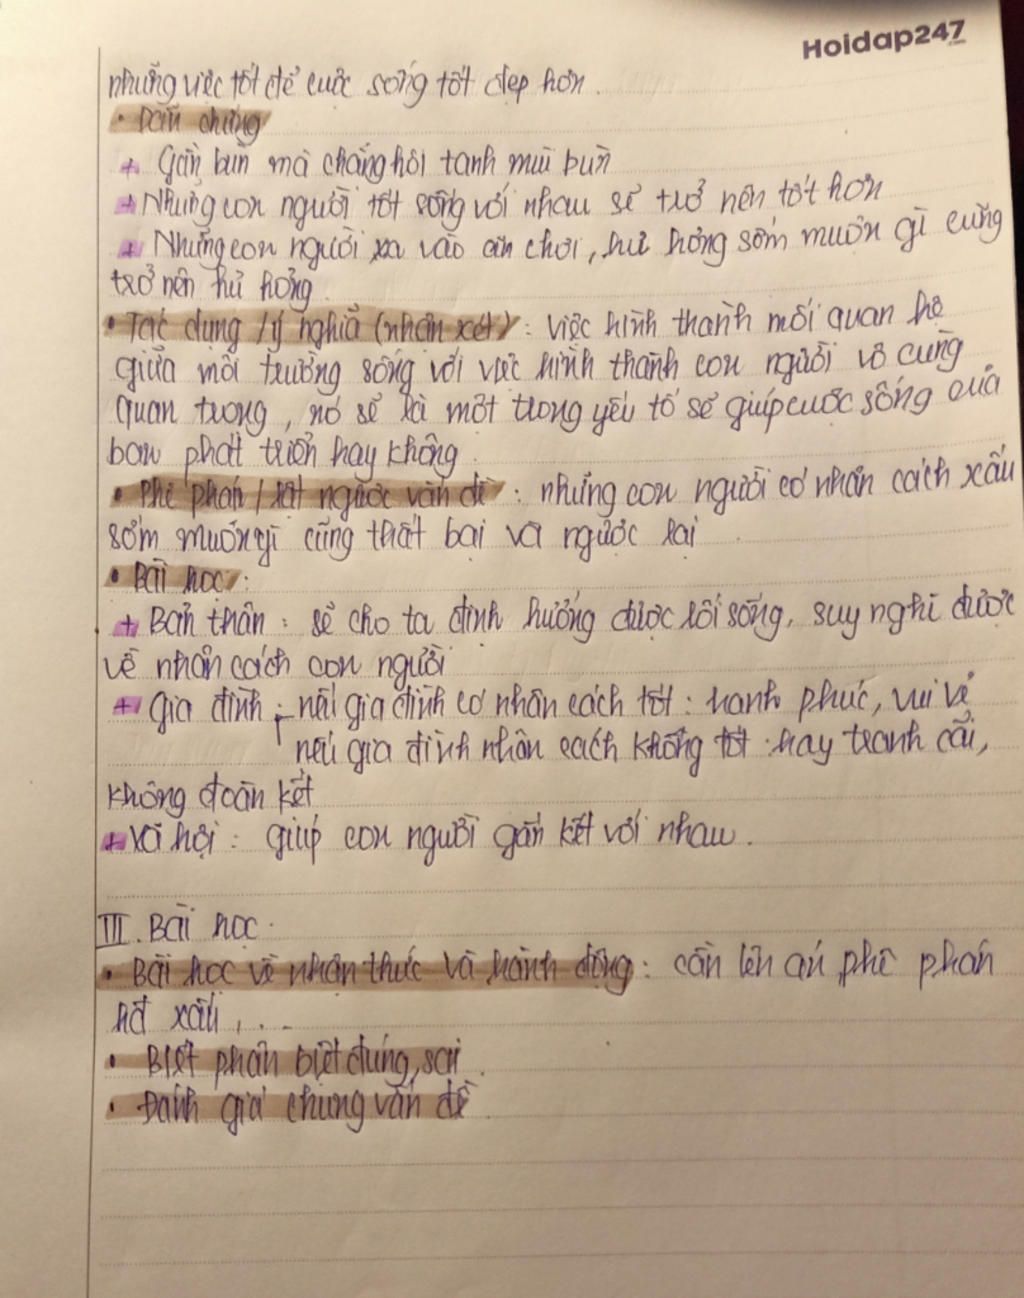 Hoidap247
.com
những việc tốt để cuộc sống tốt đẹp hơn.
• Dẫn chứng
+ Gần bùn mà chẳng hôi tanh mùi bùn
+ Những con người tốt sống với nhau sẽ trở nên tốt hơn
+ Những con người xa vào ăn chơi, hư hỏng sớm muộn gì cũng
trở nên hư hỏng.
• Tác dụng / ý nghĩa (nhận xét): việc hình thành mối quan hệ
giữa môi trường sống với việc hình thành con người vô cùng
quan trọng, nó sẽ là một trong yếu tố sẽ giúp cuộc sống của
bạn phát triển hay không.
• Phê phán / lật ngược vấn đề: những con người có nhân cách xấu
sớm muộn gì cũng thất bại và ngược lại.
• Bài học:
+ Bản thân: sẽ cho ta định hướng được lối sống, suy nghĩ được
về nhân cách con người
+ Gia đình: - nếu gia đình có nhân cách tốt: hạnh phúc, vui vẻ
nếu gia đình nhân cách không tốt: hay tranh cãi,
không đoàn kết
+ Xã hội: giúp con người gắn kết với nhau.
III. Bài học.
• Bài học về nhận thức và hành động: cần lên án phê phán
xấu, ...
• Biết phân biệt đúng, sai.
• Đánh giá chung vấn đề.